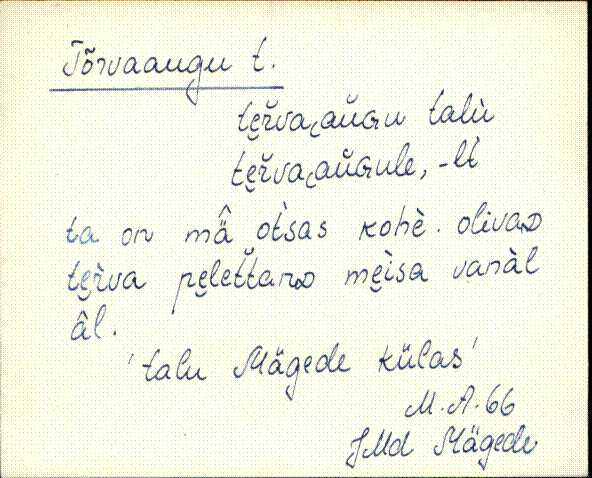 Tõrvaaugu t.
te̬r̆va‿aŭGu talù
te̬r̆va‿aŭGule, -lt̀
ta on mä̂ ot̀sas kohè. olivaD
te̬r̀va pe̬let̆tanD me̬ìsa vanàl
âl.
'talu Mägede külas'
M.A. 66
JMd Mägede